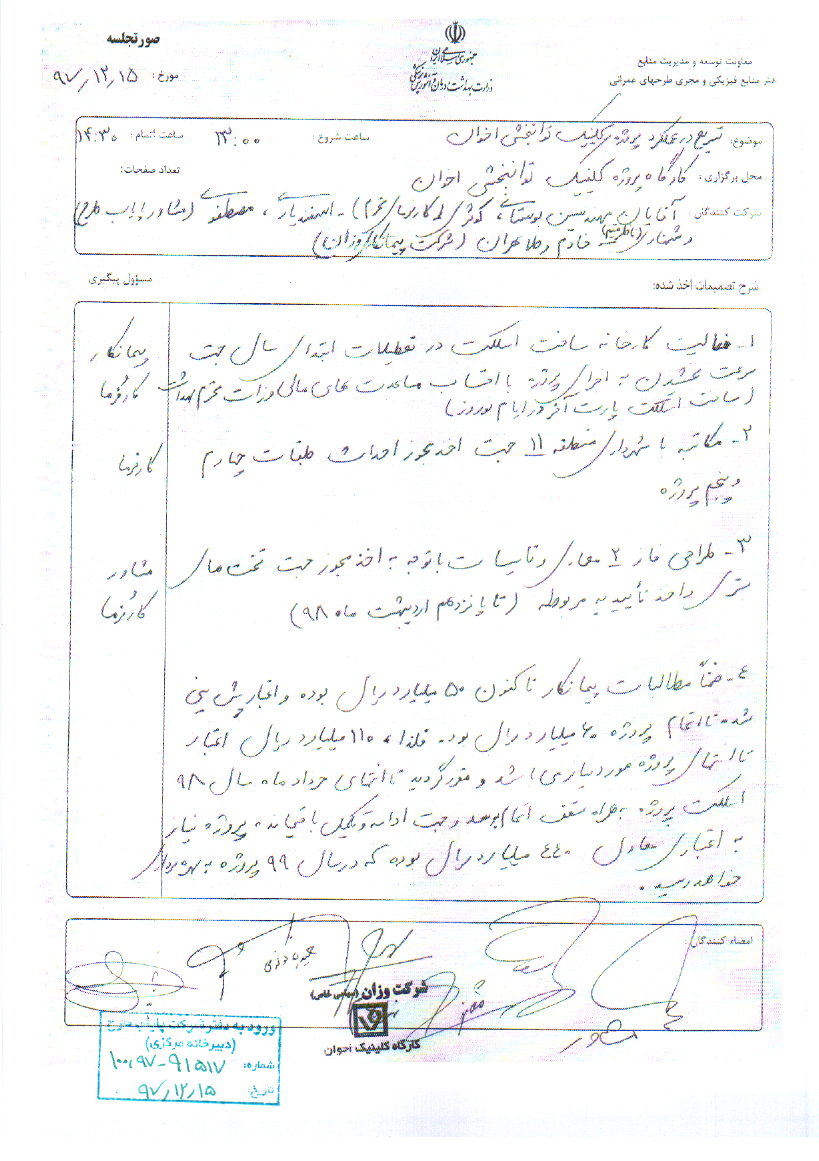 صورتجلسه
جمهوری اسلامی ایران
وزارت بهداشت درمان و آموزش پزشکی
معاونت توسعه و مدیریت منابع
دفتر منابع فیزیکی و مجری طرحهای عمرانی
مورخ : ۹۷/۱۲/۱۵
موضوع: تسریع در عملکرد پروژه کلینیک توانبخشی اخوان ساعت شروع : ۱۳:۰۰ ساعت اتمام : ۱۴:۳۰
محل برگزاری : کارگاه پروژه کلینیک توانبخشی اخوان تعداد صفحات:
شرکت کنندگان : آقایان مهندسین بوستانی، کوثری (کارفرمای محترم) - اسفندیاری، مصطفوی (مشاور پایاب طرح)
خادم و طلا مهران (شرکت پیمانکار وزان)
شرح تصمیمات اخذ شده: مسؤول پیگیری
۱- فعالیت کارخانه ساخت اسکلت در تعطیلات ابتدای سال جهت پیمانکار
سرعت بخشیدن به اجرای پروژه با احتساب مساعدت های مالی وزارت محترم بهداشت کارفرما
(ساخت اسکلت پارت آخر در ایام نوروز)
۲- مکاتبه با شهرداری منطقه ۱۱ جهت اخذ مجوز احداث طبقات چهارم کارفرما
و پنجم پروژه
۳- طراحی فاز ۲ معماری و تاسیسات با توجه به اخذ مجوز جهت تخت های مشاور
بستری و اخذ تأییدیه مربوطه (تا پانزدهم اردیبهشت ماه ۹۸) کارفرما
۴- ضمناً مطالبات پیمانکار تاکنون ۵۰ میلیارد ریال بوده و اعتبار پیش بینی
شده تا اتمام پروژه ۶۰ میلیارد ریال بود. فلذا ۱۱۰ میلیارد ریال اعتبار
تا انتهای پروژه مورد نیاز می باشد و مقرر گردید تا انتهای خرداد ماه سال ۹۸
اسکلت پروژه به همراه سقف اتمام برسد و جهت ادامه و تکمیل باقیمانده پروژه نیاز
به اعتباری معادل ۴۴۰ میلیارد ریال بوده که در سال ۹۹ پروژه به بهره برداری
خواهد رسید.
امضاء کنندگان :
شرکت وزان (سهامی خاص)
کارگاه کلینیک اخوان
مشاور
ورود به دفتر شرکت پایاب طرح
(دبیرخانه مرکزی)
شماره: ۱۰۰،۹۷-۹۱۵۱۷
تاریخ: ۹۷/۱۲/۱۵